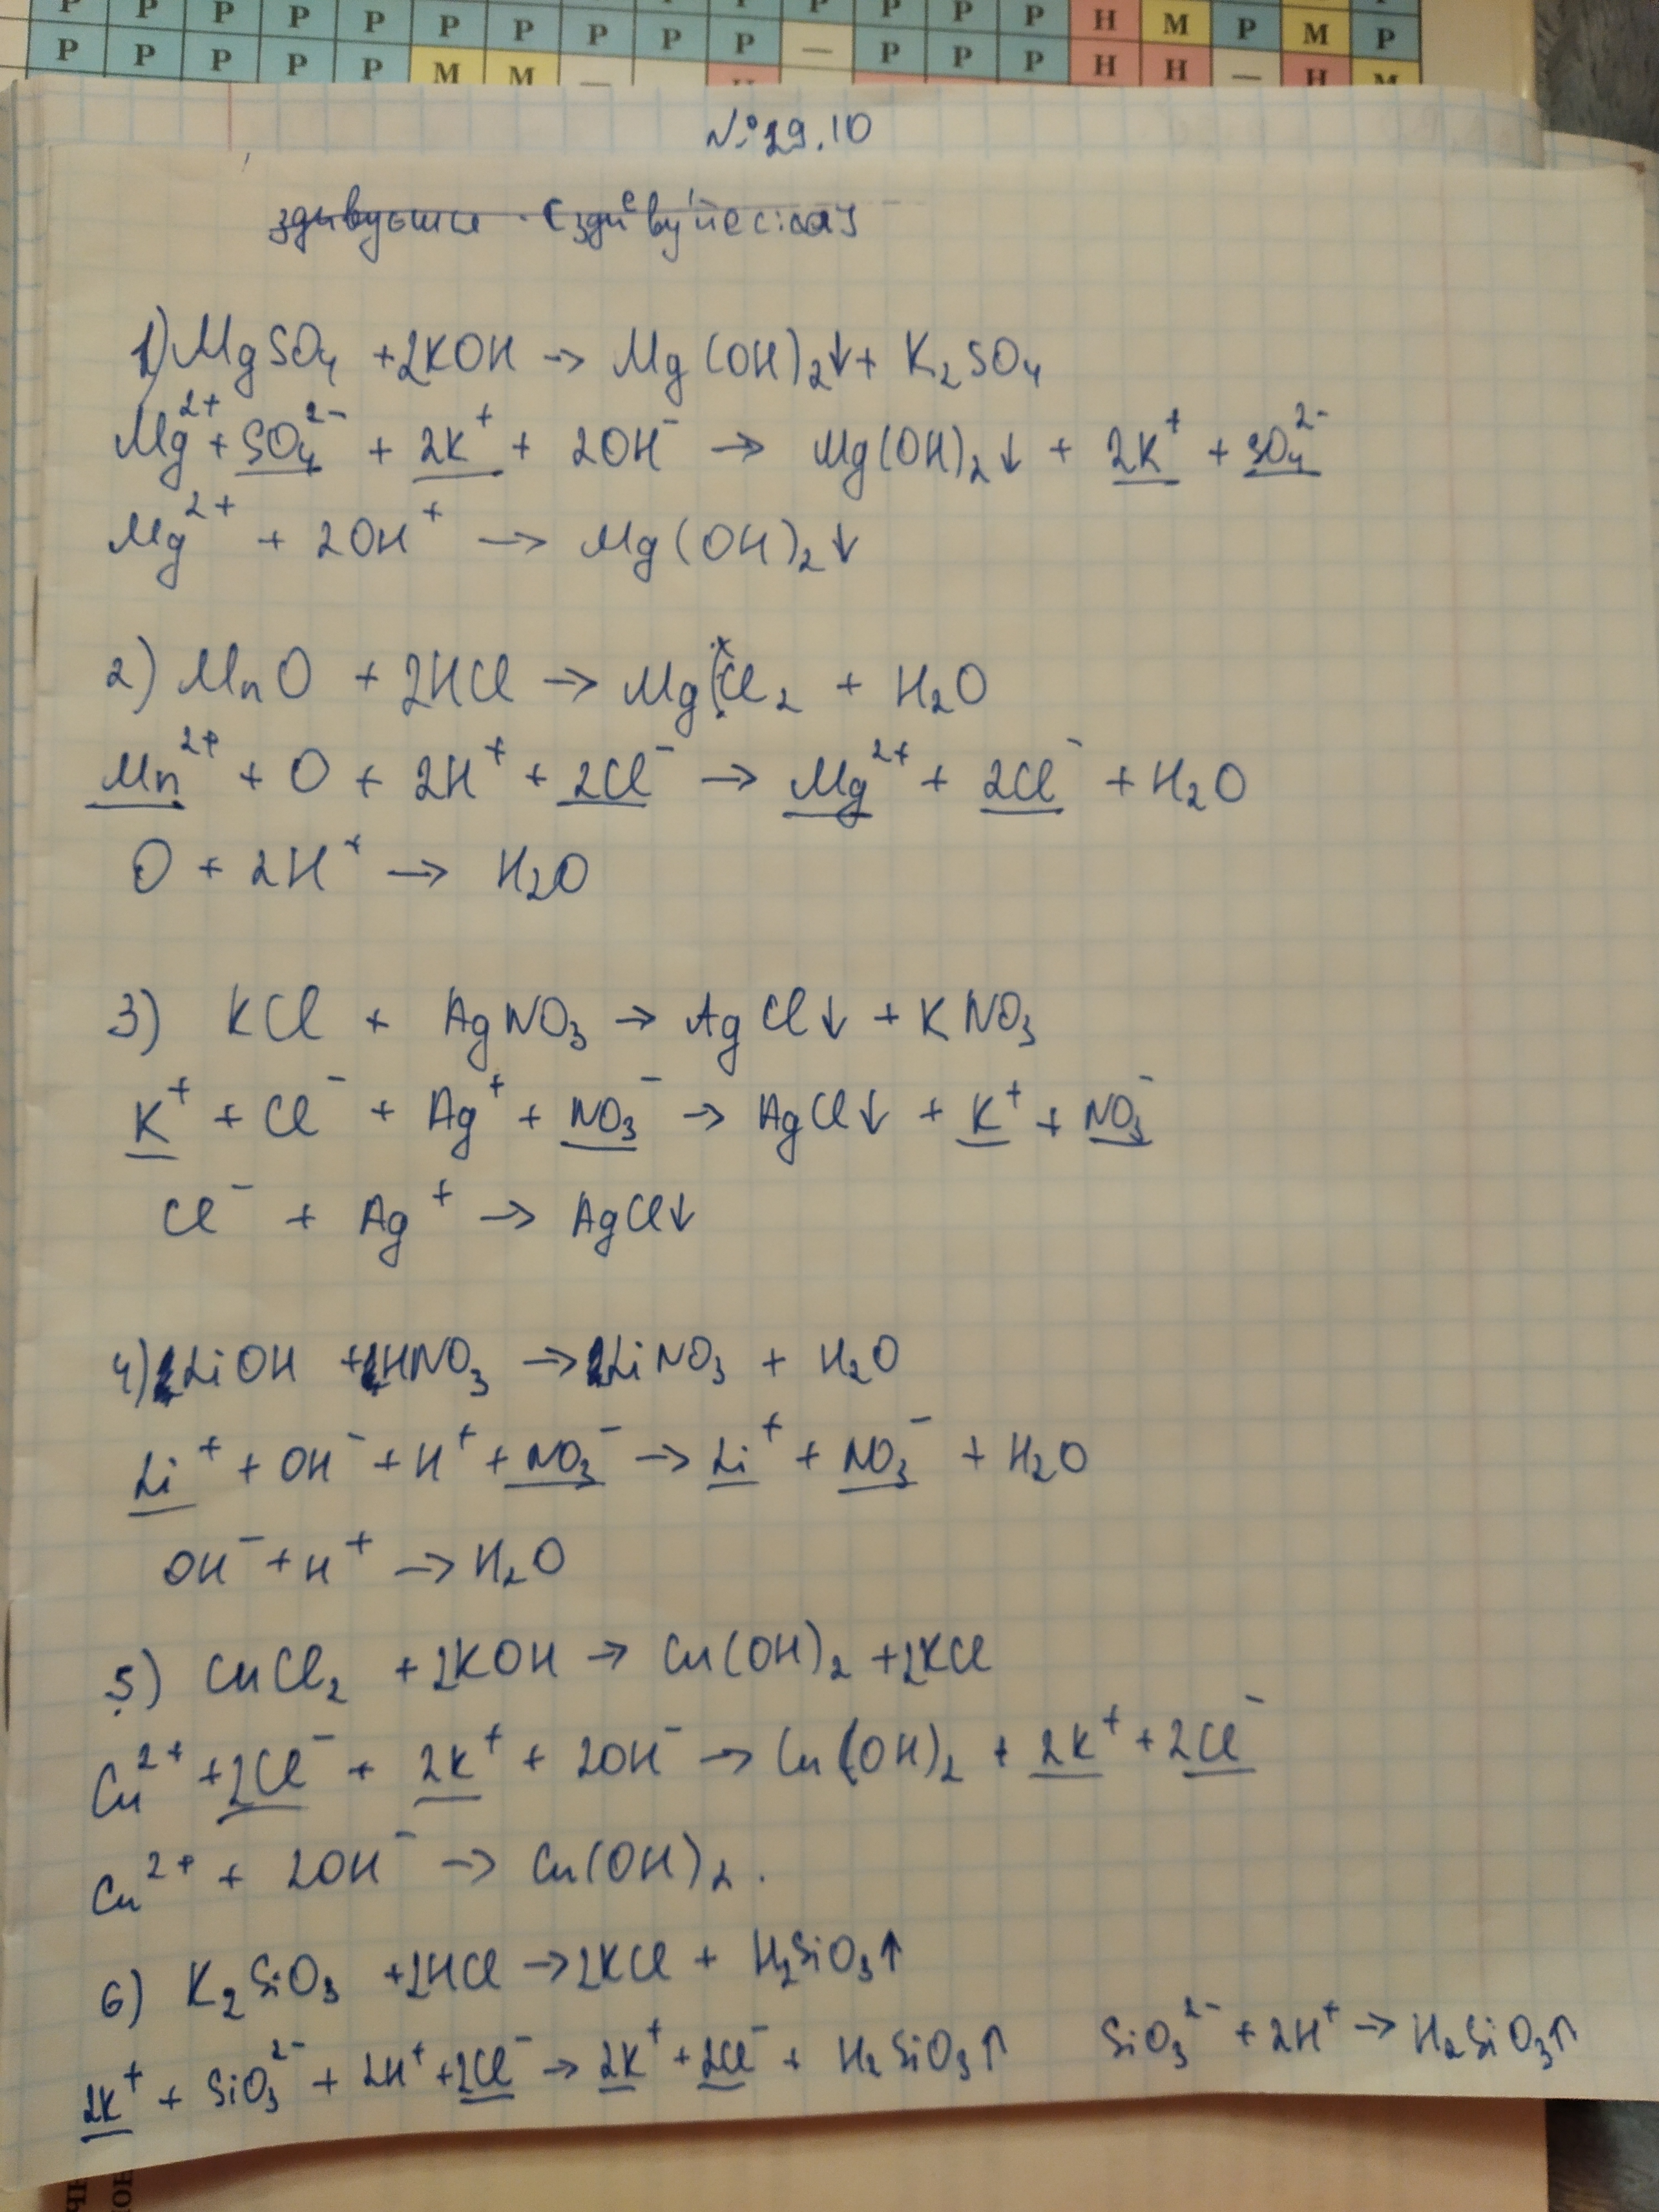 Р Р Р Р Р Р Р Р Р Р Р Р Р Н М Р М Р
Р Р Р Р Р М М — Н — Р Р Р Н Н — Н М
№ 29.10
1) MgSO₄ + 2KOH → Mg(OH)₂↓ + K₂SO₄
Mg²⁺ + SO₄²⁻ + 2K⁺ + 2OH⁻ → Mg(OH)₂↓ + 2K⁺ + SO₄²⁻
Mg²⁺ + 2OH⁺ → Mg(OH)₂↓
2) MnO + 2HCl → MgCl₂ + H₂O
Mn²⁺ + O + 2H⁺ + 2Cl⁻ → Mg²⁺ + 2Cl⁻ + H₂O
O + 2H⁺ → H₂O
3) KCl + AgNO₃ → AgCl↓ + KNO₃
K⁺ + Cl⁻ + Ag⁺ + NO₃⁻ → AgCl↓ + K⁺ + NO₃⁻
Cl⁻ + Ag⁺ → AgCl↓
4) LiOH + HNO₃ → LiNO₃ + H₂O
Li⁺ + OH⁻ + H⁺ + NO₃⁻ → Li⁺ + NO₃⁻ + H₂O
OH⁻ + H⁺ → H₂O
5) CuCl₂ + 2KOH → Cu(OH)₂ + 2KCl
Cu²⁺ + 2Cl⁻ + 2K⁺ + 2OH⁻ → Cu(OH)₂ + 2K⁺ + 2Cl⁻
Cu²⁺ + 2OH⁻ → Cu(OH)₂.
6) K₂SiO₃ + 2HCl → 2KCl + H₂SiO₃↑
2K⁺ + SiO₃²⁻ + 2H⁺ + 2Cl⁻ → 2K⁺ + 2Cl⁻ + H₂SiO₃↑ SiO₃²⁻ + 2H⁺ → H₂SiO₃↑